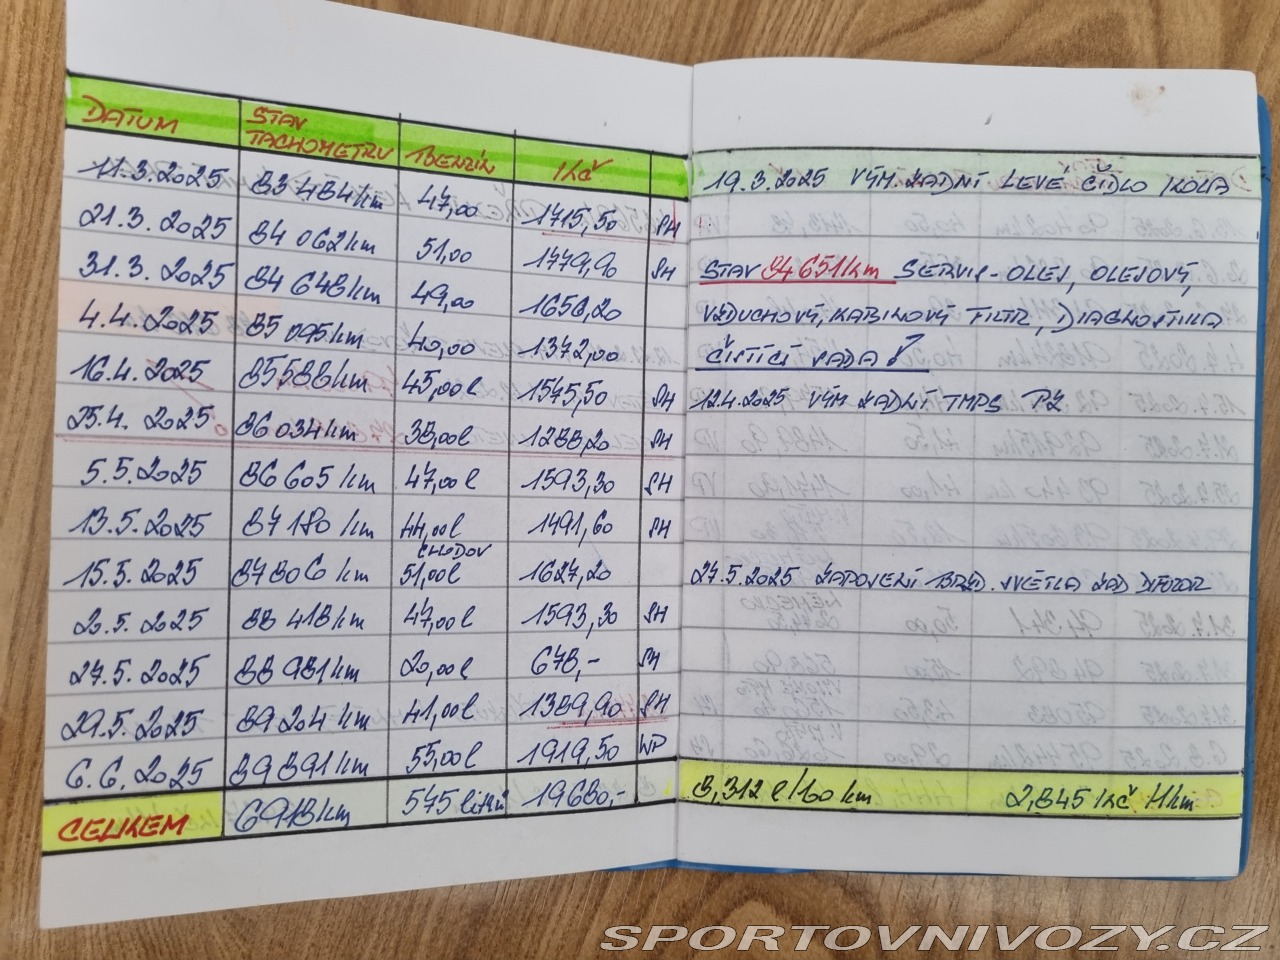 DATUM STAV TACHOMETRU BENZÍN KČ
11.3.2025 83 484km 47,00 1715,50 SH
21.3.2025 84 062km 51,00 1779,90 SH
31.3.2025 84 648km 49,00 1658,20
4.4.2025 85 095km 40,00 1372,00
16.4.2025 85588km 45,00l 1575,50 SH
25.4. 2025 86 034km 38,00l 1288,20 SH
5.5.2025 86 605 km 47,00l 1593,30 SH
13.5.2025 87 180 km 44,00l 1491,60 SH
CHODOV
15.5.2025 87806 km 51,00l 1627,20
20.5.2025 88 418km 47,00l 1593,30 SH
27.5.2025 88 981km 20,00l 678,- SH
29.5.2025 89 204 km 41,00l 1389,90 SH
6.6.2025 89 891km 55,00l 1919,50 WP
CELKEM 6918km 575 litrů 19680,-
19.3.2025 VÝM. ZADNÍ LEVÉ ČÍDLO KOLA
STAV 84 651km SERVIS - OLEJ, OLEJOVÝ,
VZDUCHOVÝ, KABINOVÝ FILTR, DIAGNOSTIKA
ČISTÍCÍ SADA!
12.4.2025 VÝM ZADNÍ TMPS PZ
27.5.2025 ZAPOJENÍ BRZD. SVĚTLA ZAD DIFUZOR
8,312 l/100 km 2,845 Kč /1km
SPORTOVNIVOZY.CZ